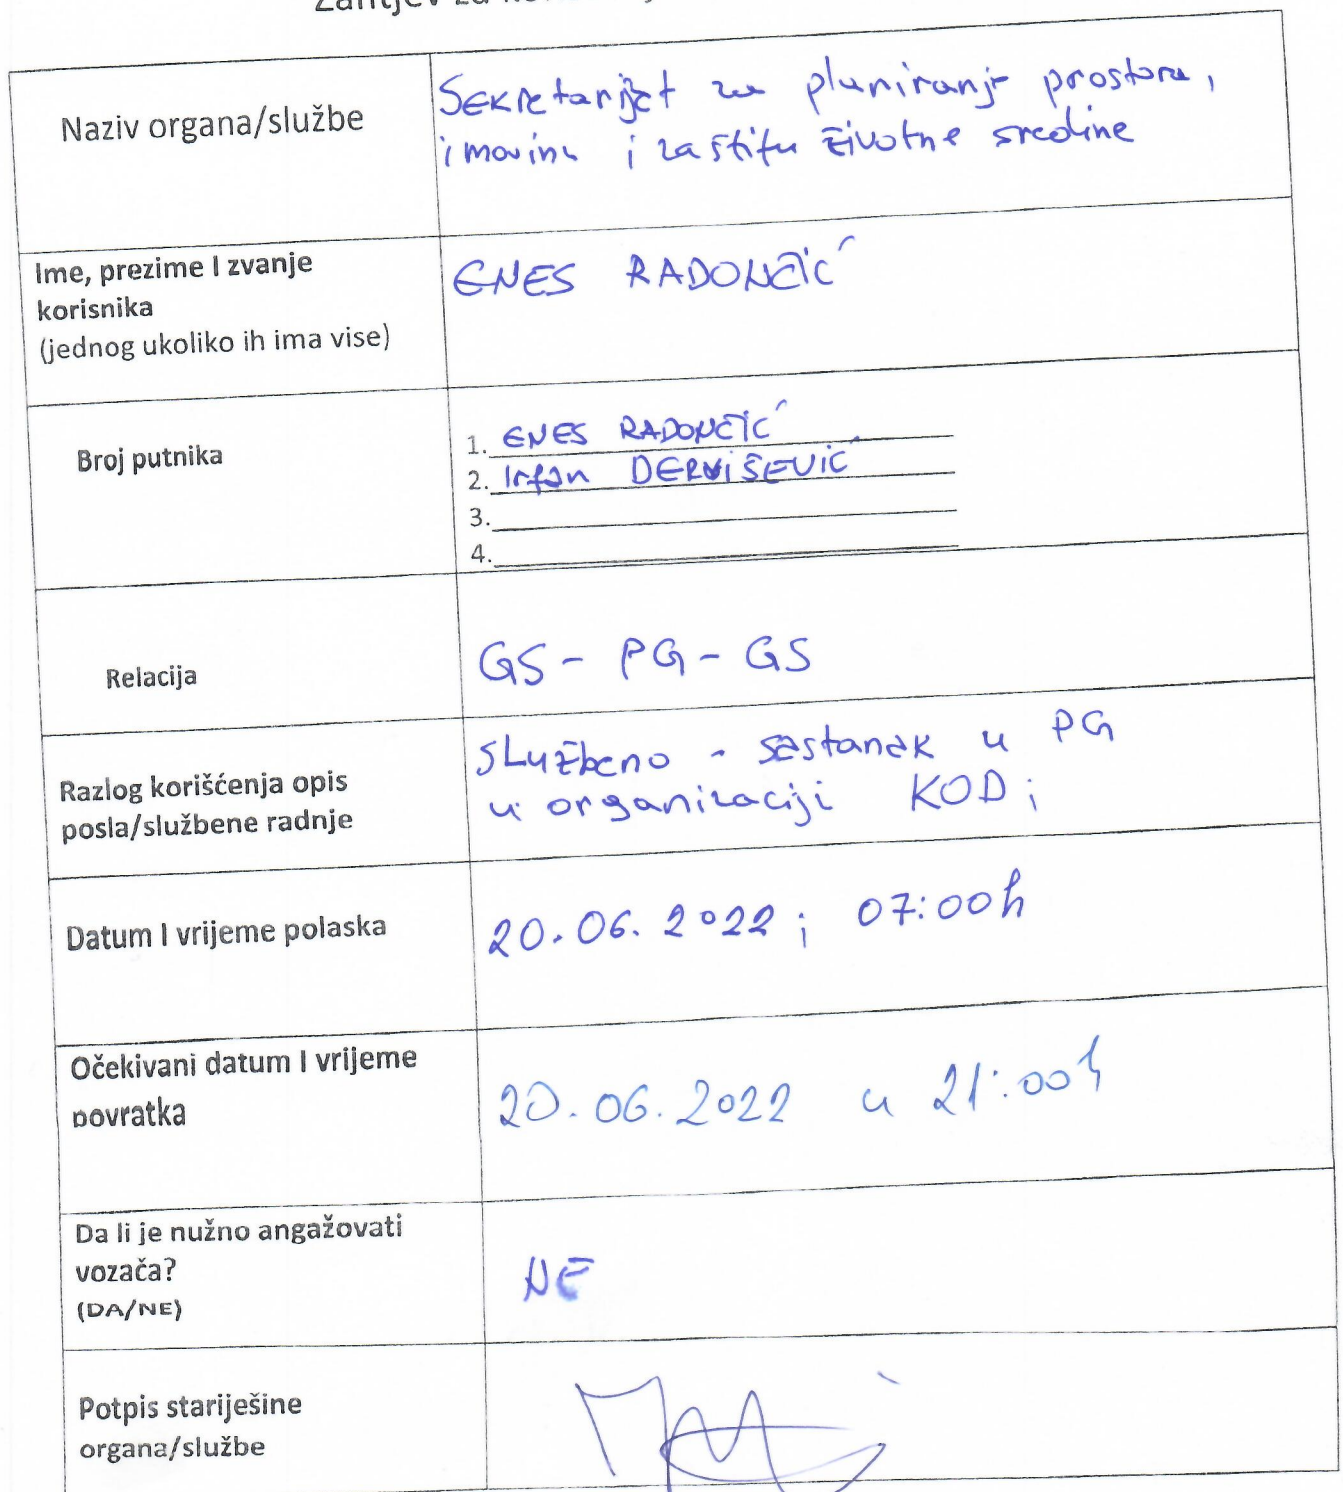 Zahtjev za
Naziv organa/službe
Sekretarijat za planiranje prostora,
imovinu i zaštitu životne sredine
Ime, prezime I zvanje
korisnika
(jednog ukoliko ih ima vise)
ENES RADONČIĆ
Broj putnika
1. ENES RADONČIĆ
2. Irfan DERVIŠEVIĆ
3.
4.
Relacija
GS - PG - GS
Razlog korišćenja opis
posla/službene radnje
Službeno - sastanak u PG
u organizaciji KOD;
Datum I vrijeme polaska
20.06.2022; 07:00h
Očekivani datum I vrijeme
povratka
20.06.2022 u 21:00h
Da li je nužno angažovati
vozača?
(DA/NE)
NE
Potpis starijěšine
organa/službe